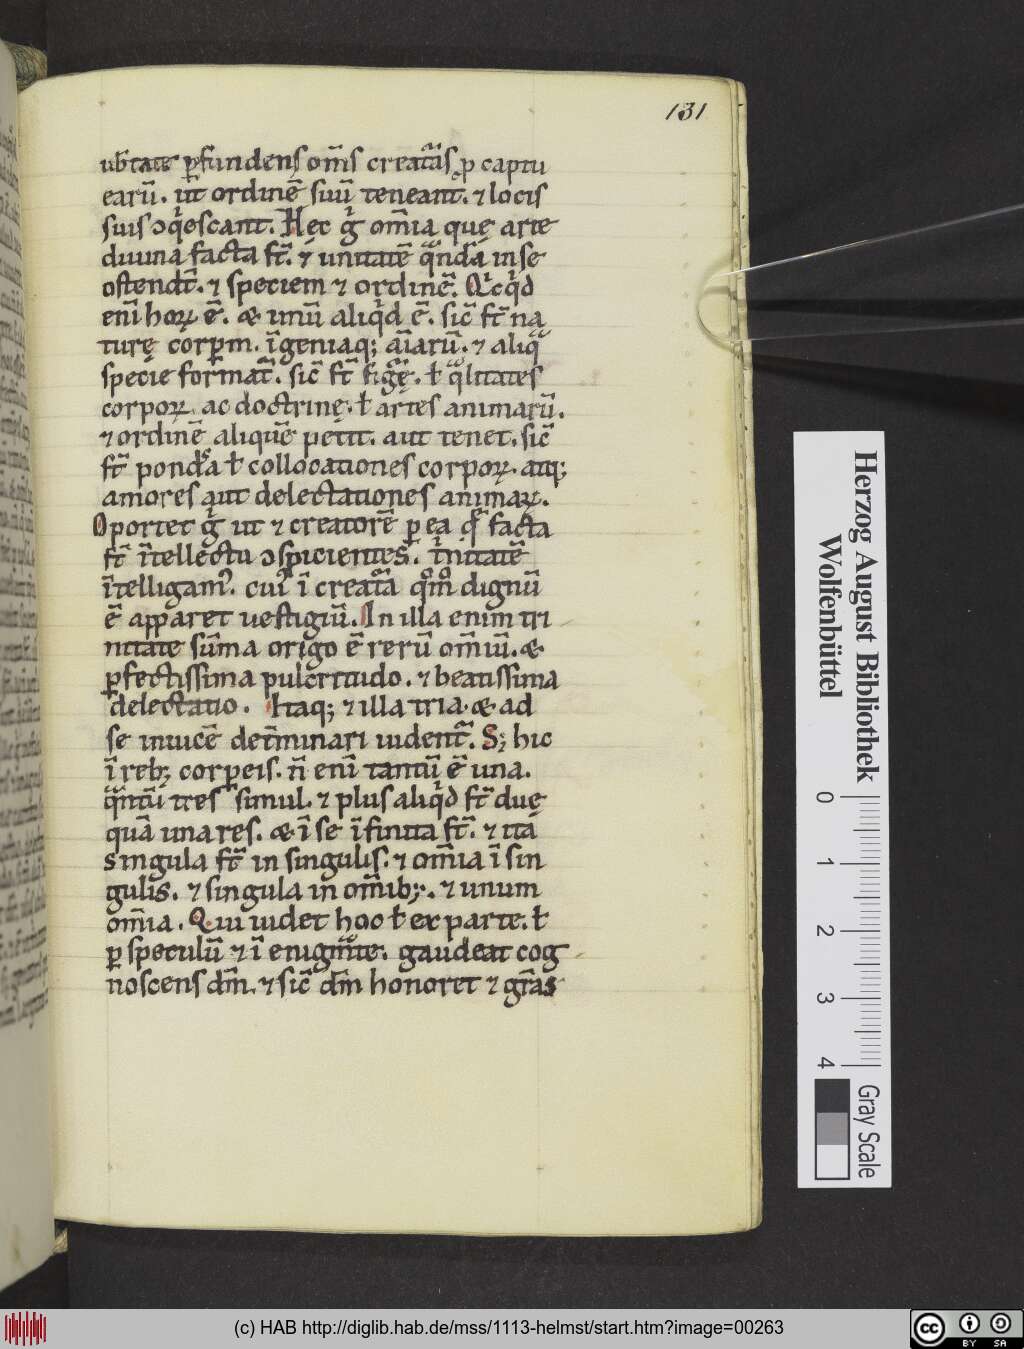 131
ub̄tate ꝑfundens om̄s creat̄as ꝓ captu
earū. ut̄ ordinē suū teneant. ⁊ locis
suis ꝯqescant. Hec g̊ om̄ia quę arte
diuina facta st̄. ⁊ unitatē qͣndā in se
ostendt̄. ⁊ speciem ⁊ ordinē. Qͥcqͥd
enī hoꝝ ē. & unū aliqͥd ē. sic̄ st̄ na
turę corꝑm. īgeniaq; aīarū. ⁊ aliqͣ
specie format̄. sic̄ st̄ figͣę. ł qͣlitates
corpoꝝ. ac doctrinę. ł artes animarū.
⁊ ordinē aliquē petit. aut tenet. sic̄
st̄ pondͤa ł collocationes corpoꝝ. atq;
amores aut delectationes animaꝝ.
Oportet g̊ ut ⁊ creatorē ꝑ ea q̄ facta
st̄ ītellectu ꝯspicientes. tͥnitatē
ītelligam᷒. cui᷒ ī creatͣa qͦmͦ dignū
ē apparet uestigiū. In illa enim tri
nitate sūma origo ē rerū om̄iū. &
ꝑfectissima pulcritudo. ⁊ beatissima
delectatio. Itaq; ⁊ illa tria. & ad
se inuicē det̄minari uident̄. S; hic
ī reb; corꝑeis. n̄ enī tantū ē una.
qͣntū tres simul. ⁊ plus aliqͥd st̄ duę
quā una res. & ī se īfinita st̄. ⁊ ita
singula st̄ in singulis. ⁊ om̄ia ī sin
gulis. ⁊ singula in om̄ib;. ⁊ unum
om̄ia. Qui uidet hoc ł ex parte. ł
ꝑ speculū ⁊ ī enigmͣte. gaudeat cog
noscens dm̄. ⁊ sic̄ dm̄ honoret ⁊ grā̄s
Herzog August Bibliothek
Wolfenbüttel
0 1 2 3 4
Gray Scale
(c) HAB http://diglib.hab.de/mss/1113-helmst/start.htm?image=00263
cc BY SA